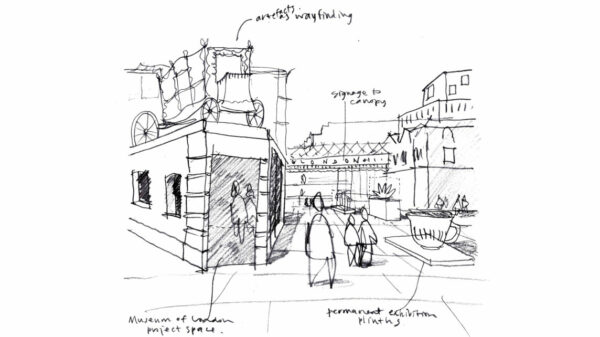 artefacts wayfinding
signage to
canopy
LONDON
Museum of London
project space.
permanent exhibition
plinths